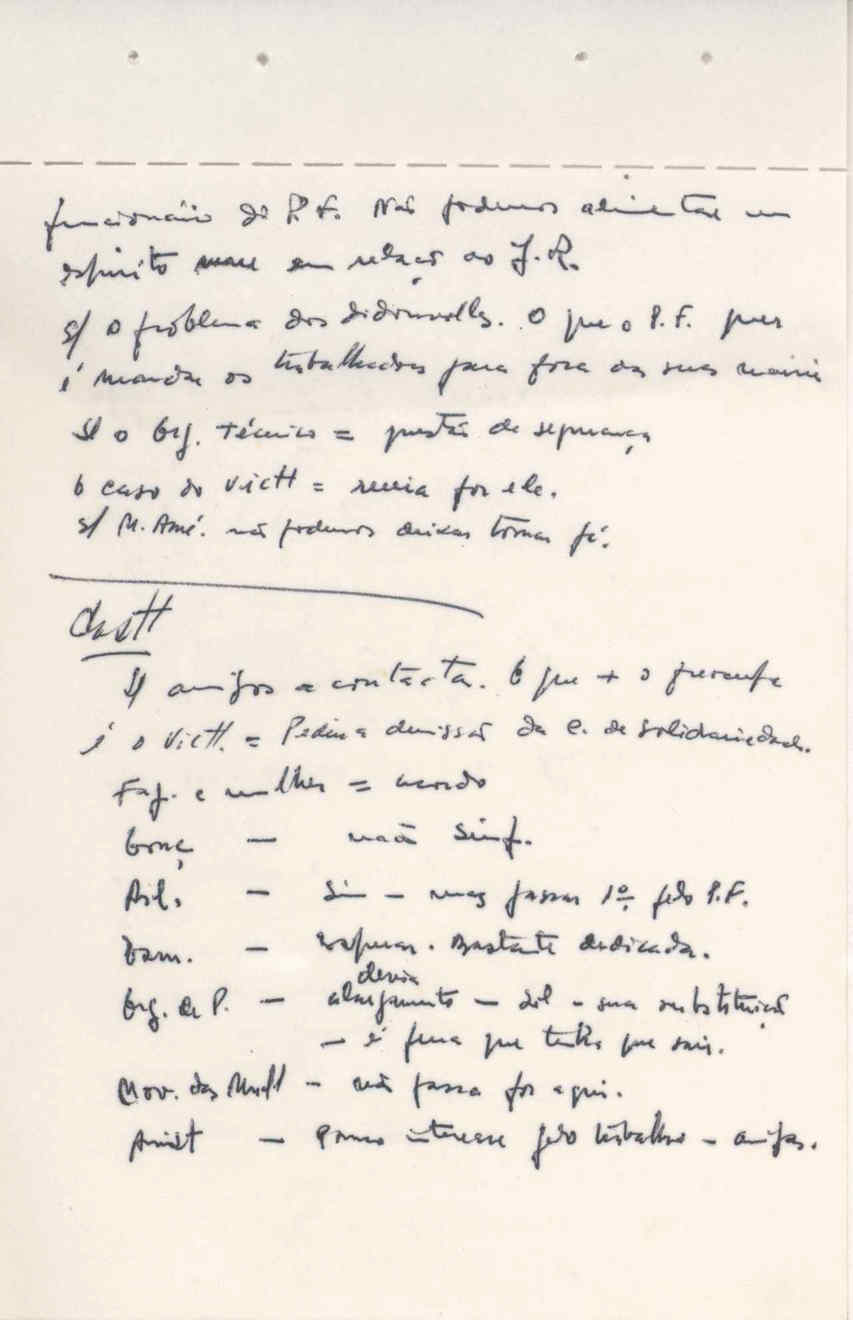 funcionário do P.F. Não podemos alimentar um
espírito mau em relação ao J.R.
s/ o problema dos O que o P.F. quer
é mandar os trabalhadores para fora das suas
s/ o Org. técnico = questão de segurança
O caso do Vict = por ele.
s/ M. Amé. não podemos deixar tomar pé.
s/ amigos a contactar. O que + o preocupa
é o Vict. = Pedir a demissão da C. de Solidariedade.
Faf. e mulher = acordo
Gonç — não
Dil. — Sim – mas passar 1º pelo P.F.
— Bastante dedicada.
devia
Org. de P. — alargamento — dil – sua substituição
— é pena que tenha que sair.
Mov. das Mulh – não passa por aqui.
— Pouco interesse pelo trabalho – amigas.